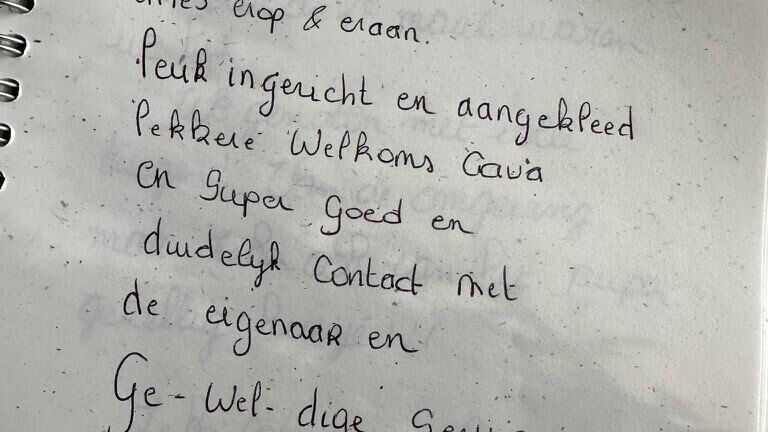 erop & eraan.
Leuk ingericht en aangekleed
lekkere Welkoms Cava
en super goed en
duidelyk Contact met
de eigenaar en
Ge-Wel-dige